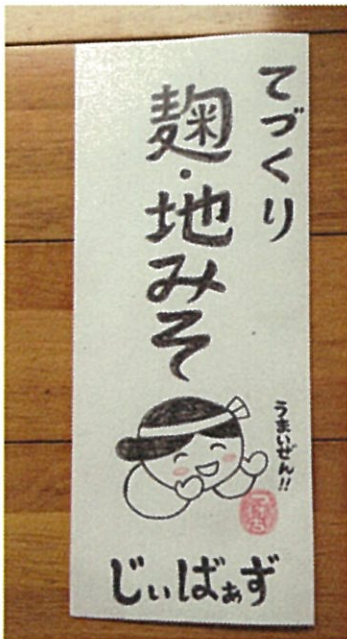 てづくり
麹・地みそ
うまいぜん!!
じぃばぁず